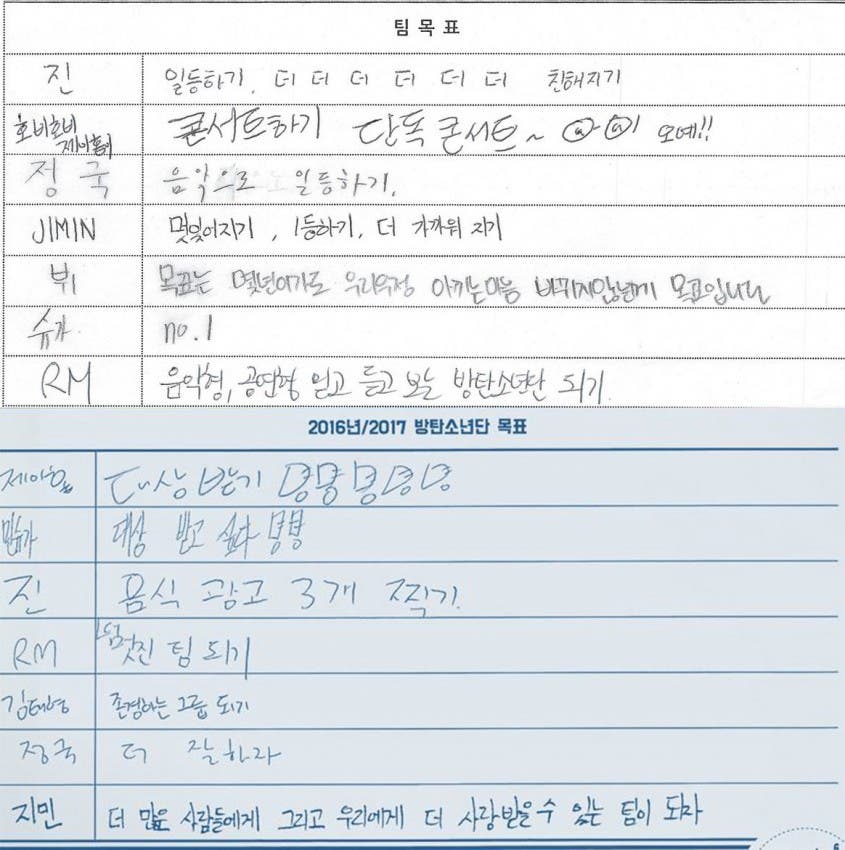 팀 목표
진 일등하기. 더 더 더 더 더 더 친해지기
호비호비 제이홉이 콘서트하기 단독 콘서트~ @.@! 오예!!
정국 음악으로 일등하기.
JIMIN 멋있어지기, 1등하기, 더 가까워 지기
뷔 목표는 몇년이가도 우리우정 아끼는마음 바뀌지않는게 목표입니다
슈가 no.1
RM 음악형, 공연형 믿고 듣고 보는 방탄소년단 되기
2016년/2017 방탄소년단 목표
제이홉 대상 받기
민슈가 대상 받고 싶다
진 음식 광고 3개 찍기.
RM 멋진 팀 되기
김태형 존경하는 그룹 되기
정국 더 잘하자
지민 더 많은 사람들에게 그리고 우리에게 더 사랑받을 수 있는 팀이 되자
6